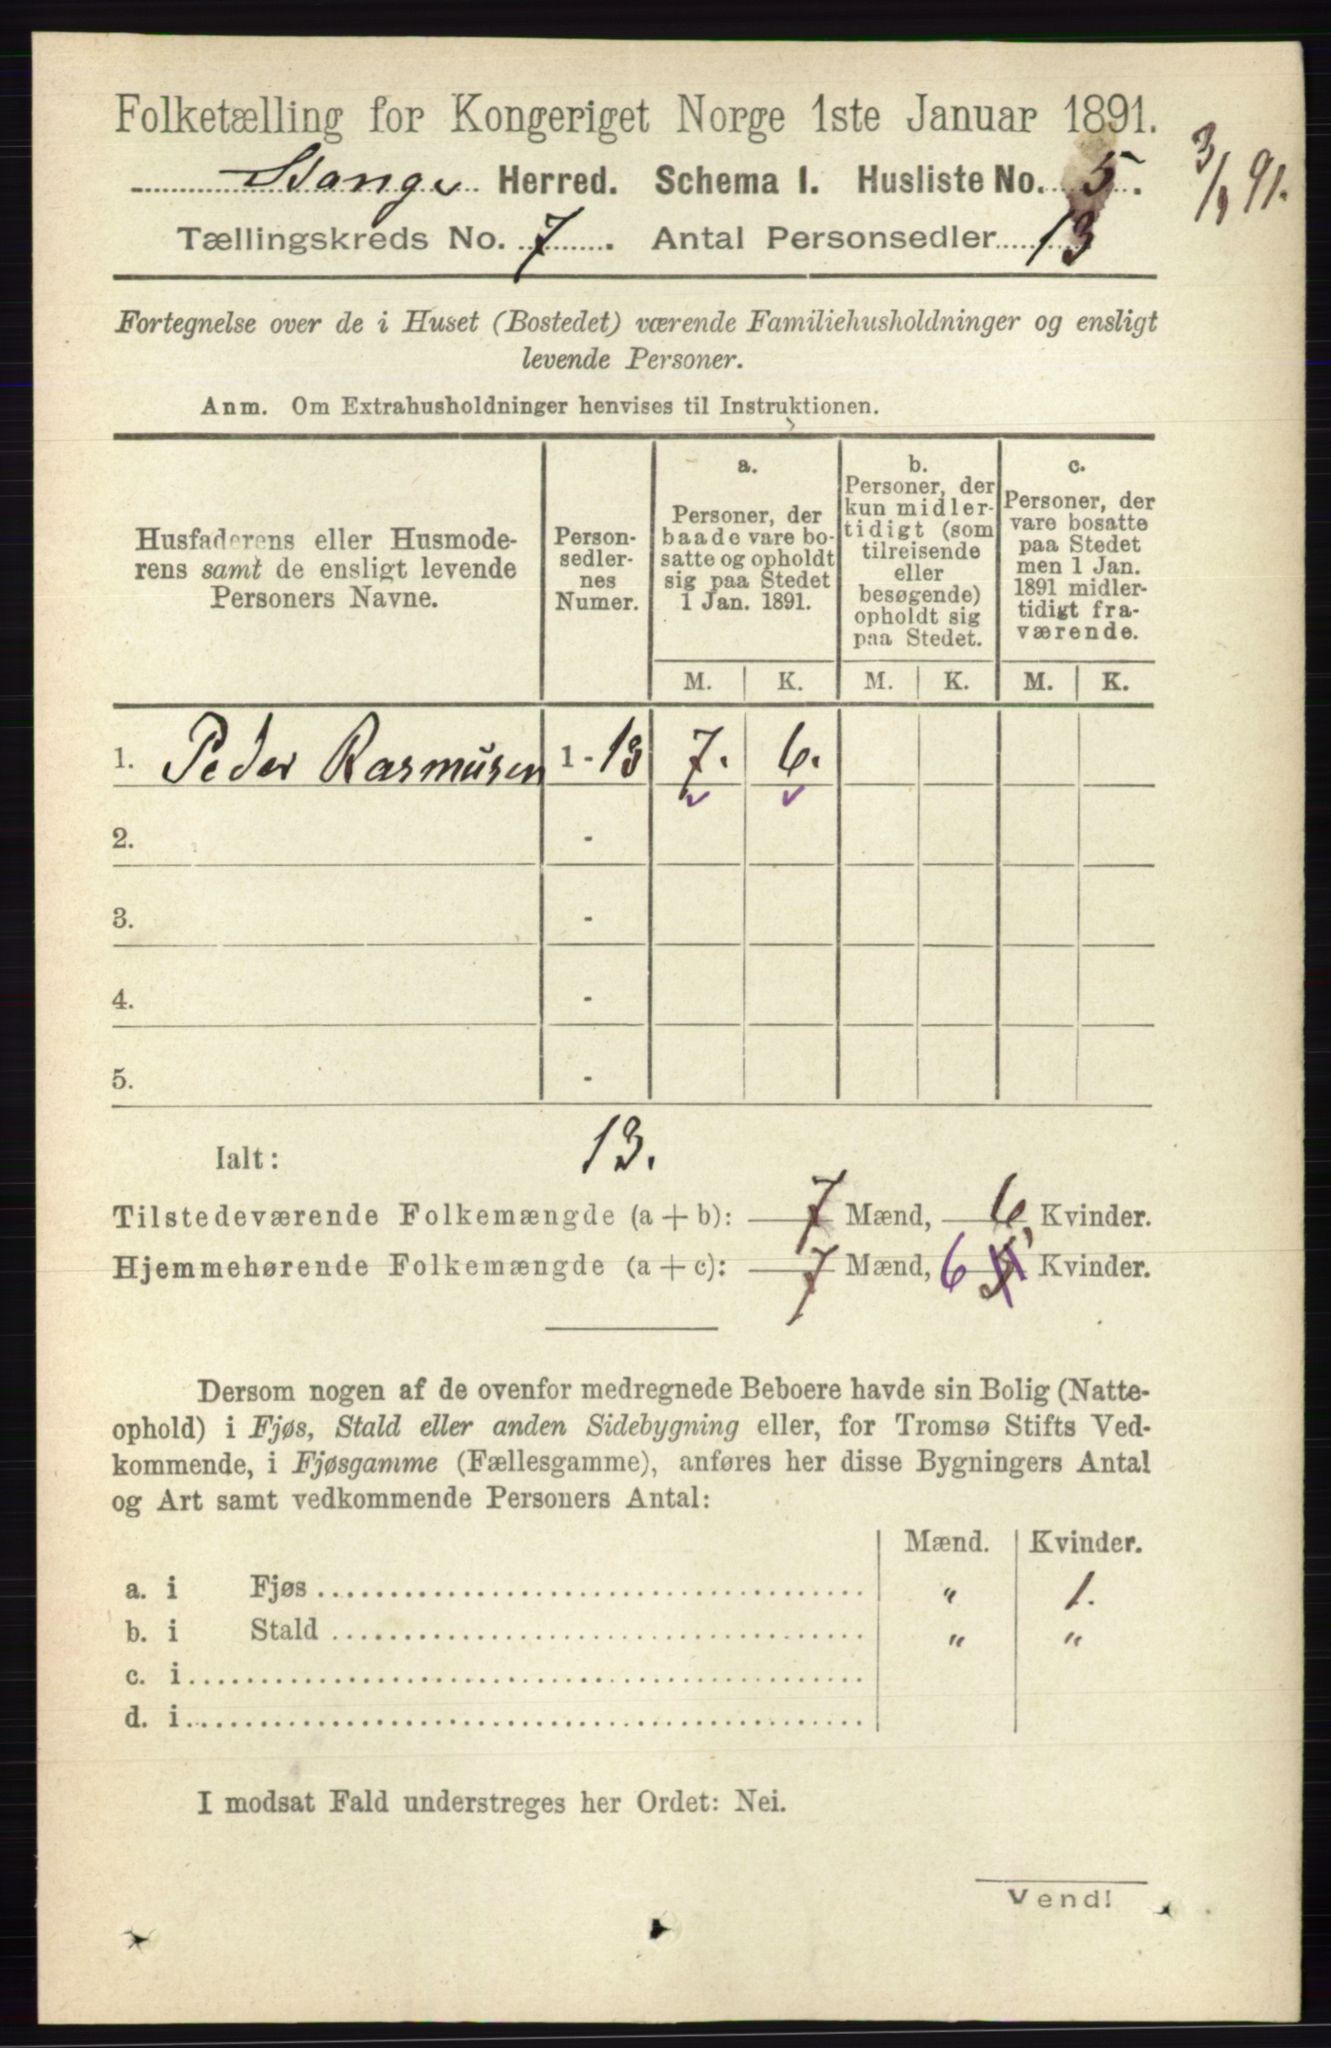 Folketælling for Kongeriget Norge 1ste Januar 1891.
Stange Herred. Schema I. Husliste No. 5.
3/1 91.
Tællingskreds No. 7. Antal Personsedler 13
Fortegnelse over de i Huset (Bostedet) værende Familiehusholdninger og ensligt
levende Personer.
Anm. Om Extrahusholdninger henvises til Instruktionen.
Husfaderens eller Husmode-
rens samt de ensligt levende
Personers Navne.
Person-
sedler-
nes
Numer.
a.
Personer, der
baade vare bo-
satte og opholdt
sig paa Stedet
1 Jan. 1891.
b.
Personer, der
kun midler-
tidigt (som
tilreisende
eller
besøgende)
opholdt sig
paa Stedet.
c.
Personer, der
vare bosatte
paa Stedet
men 1 Jan.
1891 midler-
tidigt fra-
værende.
M. K. M. K. M. K.
1. Peder Rasmusen 1 - 13 7. 6.
2. -
3. -
4. -
5. -
Ialt: 13.
Tilstedeværende Folkemængde (a + b): 7 Mænd, 6 Kvinder.
Hjemmehørende Folkemængde (a + c): 7 Mænd, 6 5 Kvinder.
Dersom nogen af de ovenfor medregnede Beboere havde sin Bolig (Natte-
ophold) i Fjøs, Stald eller anden Sidebygning eller, for Tromsø Stifts Ved-
kommende, i Fjøsgamme (Fællesgamme), anføres her disse Bygningers Antal
og Art samt vedkommende Personers Antal:
Mænd. Kvinder.
a. i Fjøs " 1.
b. i Stald " "
c. i
d. i
I modsat Fald understreges her Ordet: Nei.
Vend!